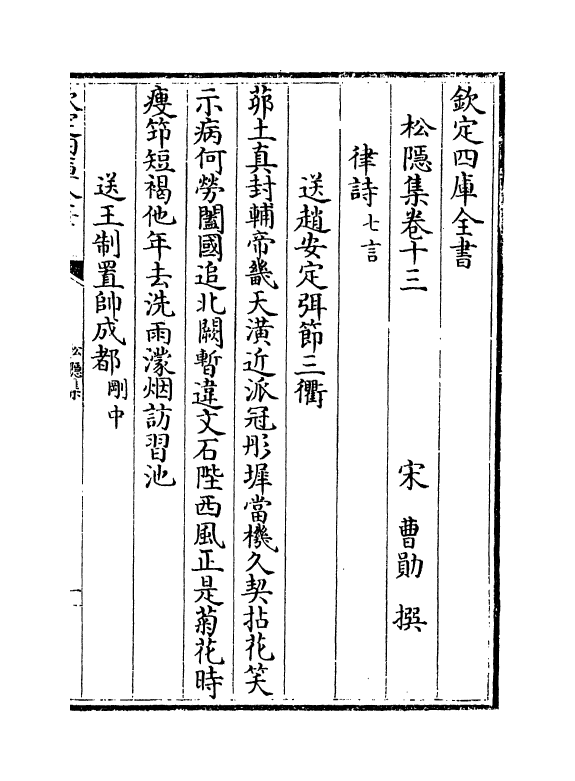 欽定四庫全書
松隱集卷十三
宋 曹勛 撰
律詩七言
送趙安定弭節三衢
茆土真封輔帝畿天潢近派冠彤墀當機久契拈花笑
示病何勞闔國追北闕暫違文石陛西風正是菊花時
瘦筇短褐他年去洗雨濛烟訪習池
送王制置帥成都剛中